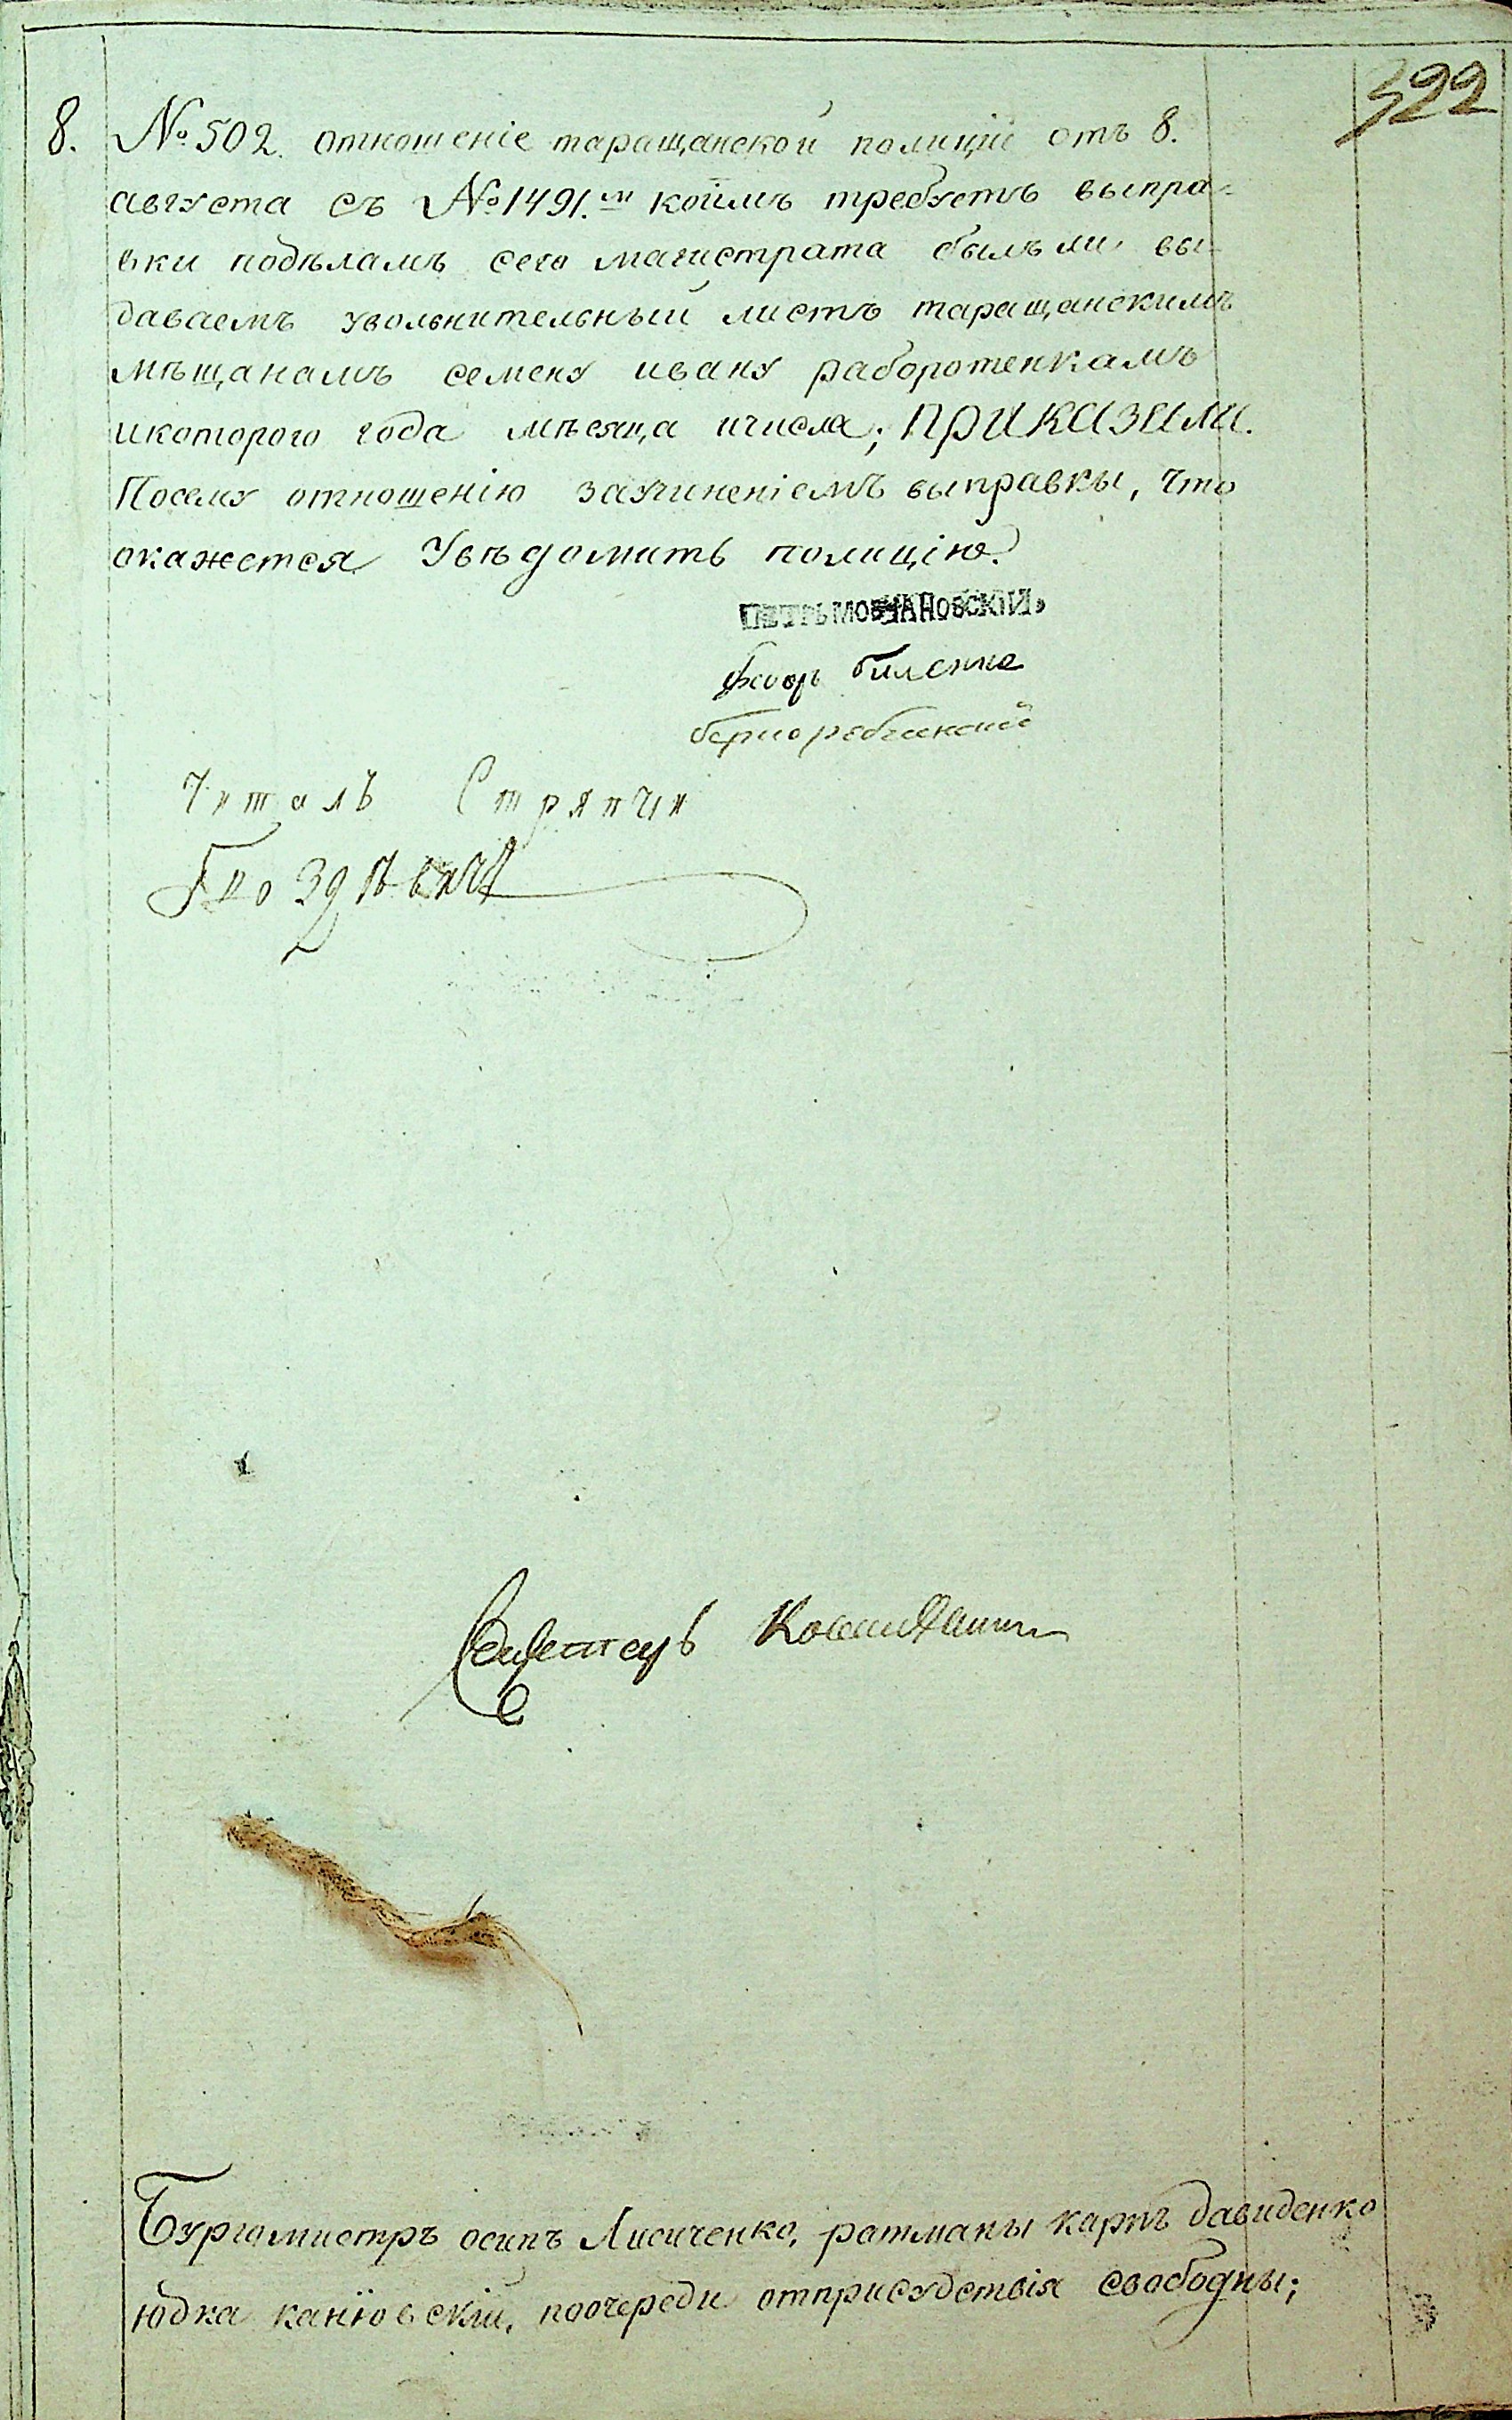 322
8. № 502. отношеніе таращанской полиціи отъ 8.
августа съ № 1491.м коймъ требуетъ выпра-
вки подѣламъ сего магистрата былъ ли вы-
даваемъ увольнительный листъ таращанскимъ
мѣщанамъ семену ивану рабо­ротенкамъ
икоторого года мѣсяца ичисла; ПРИКАЗАЛИ.
Посему отношенію заучиненіемъ выправки, что
окажется увѣдомить полицію.
ПЕТРЪ МОВЧАНОВСКІЙ
Читалъ Стряпчи
Гвоздѣвичъ
Секретарь
Бургомистръ осипъ Лисиченко, ратманы карпъ давиденко
юдка канювскій, поочереди отприсудствія свободны;